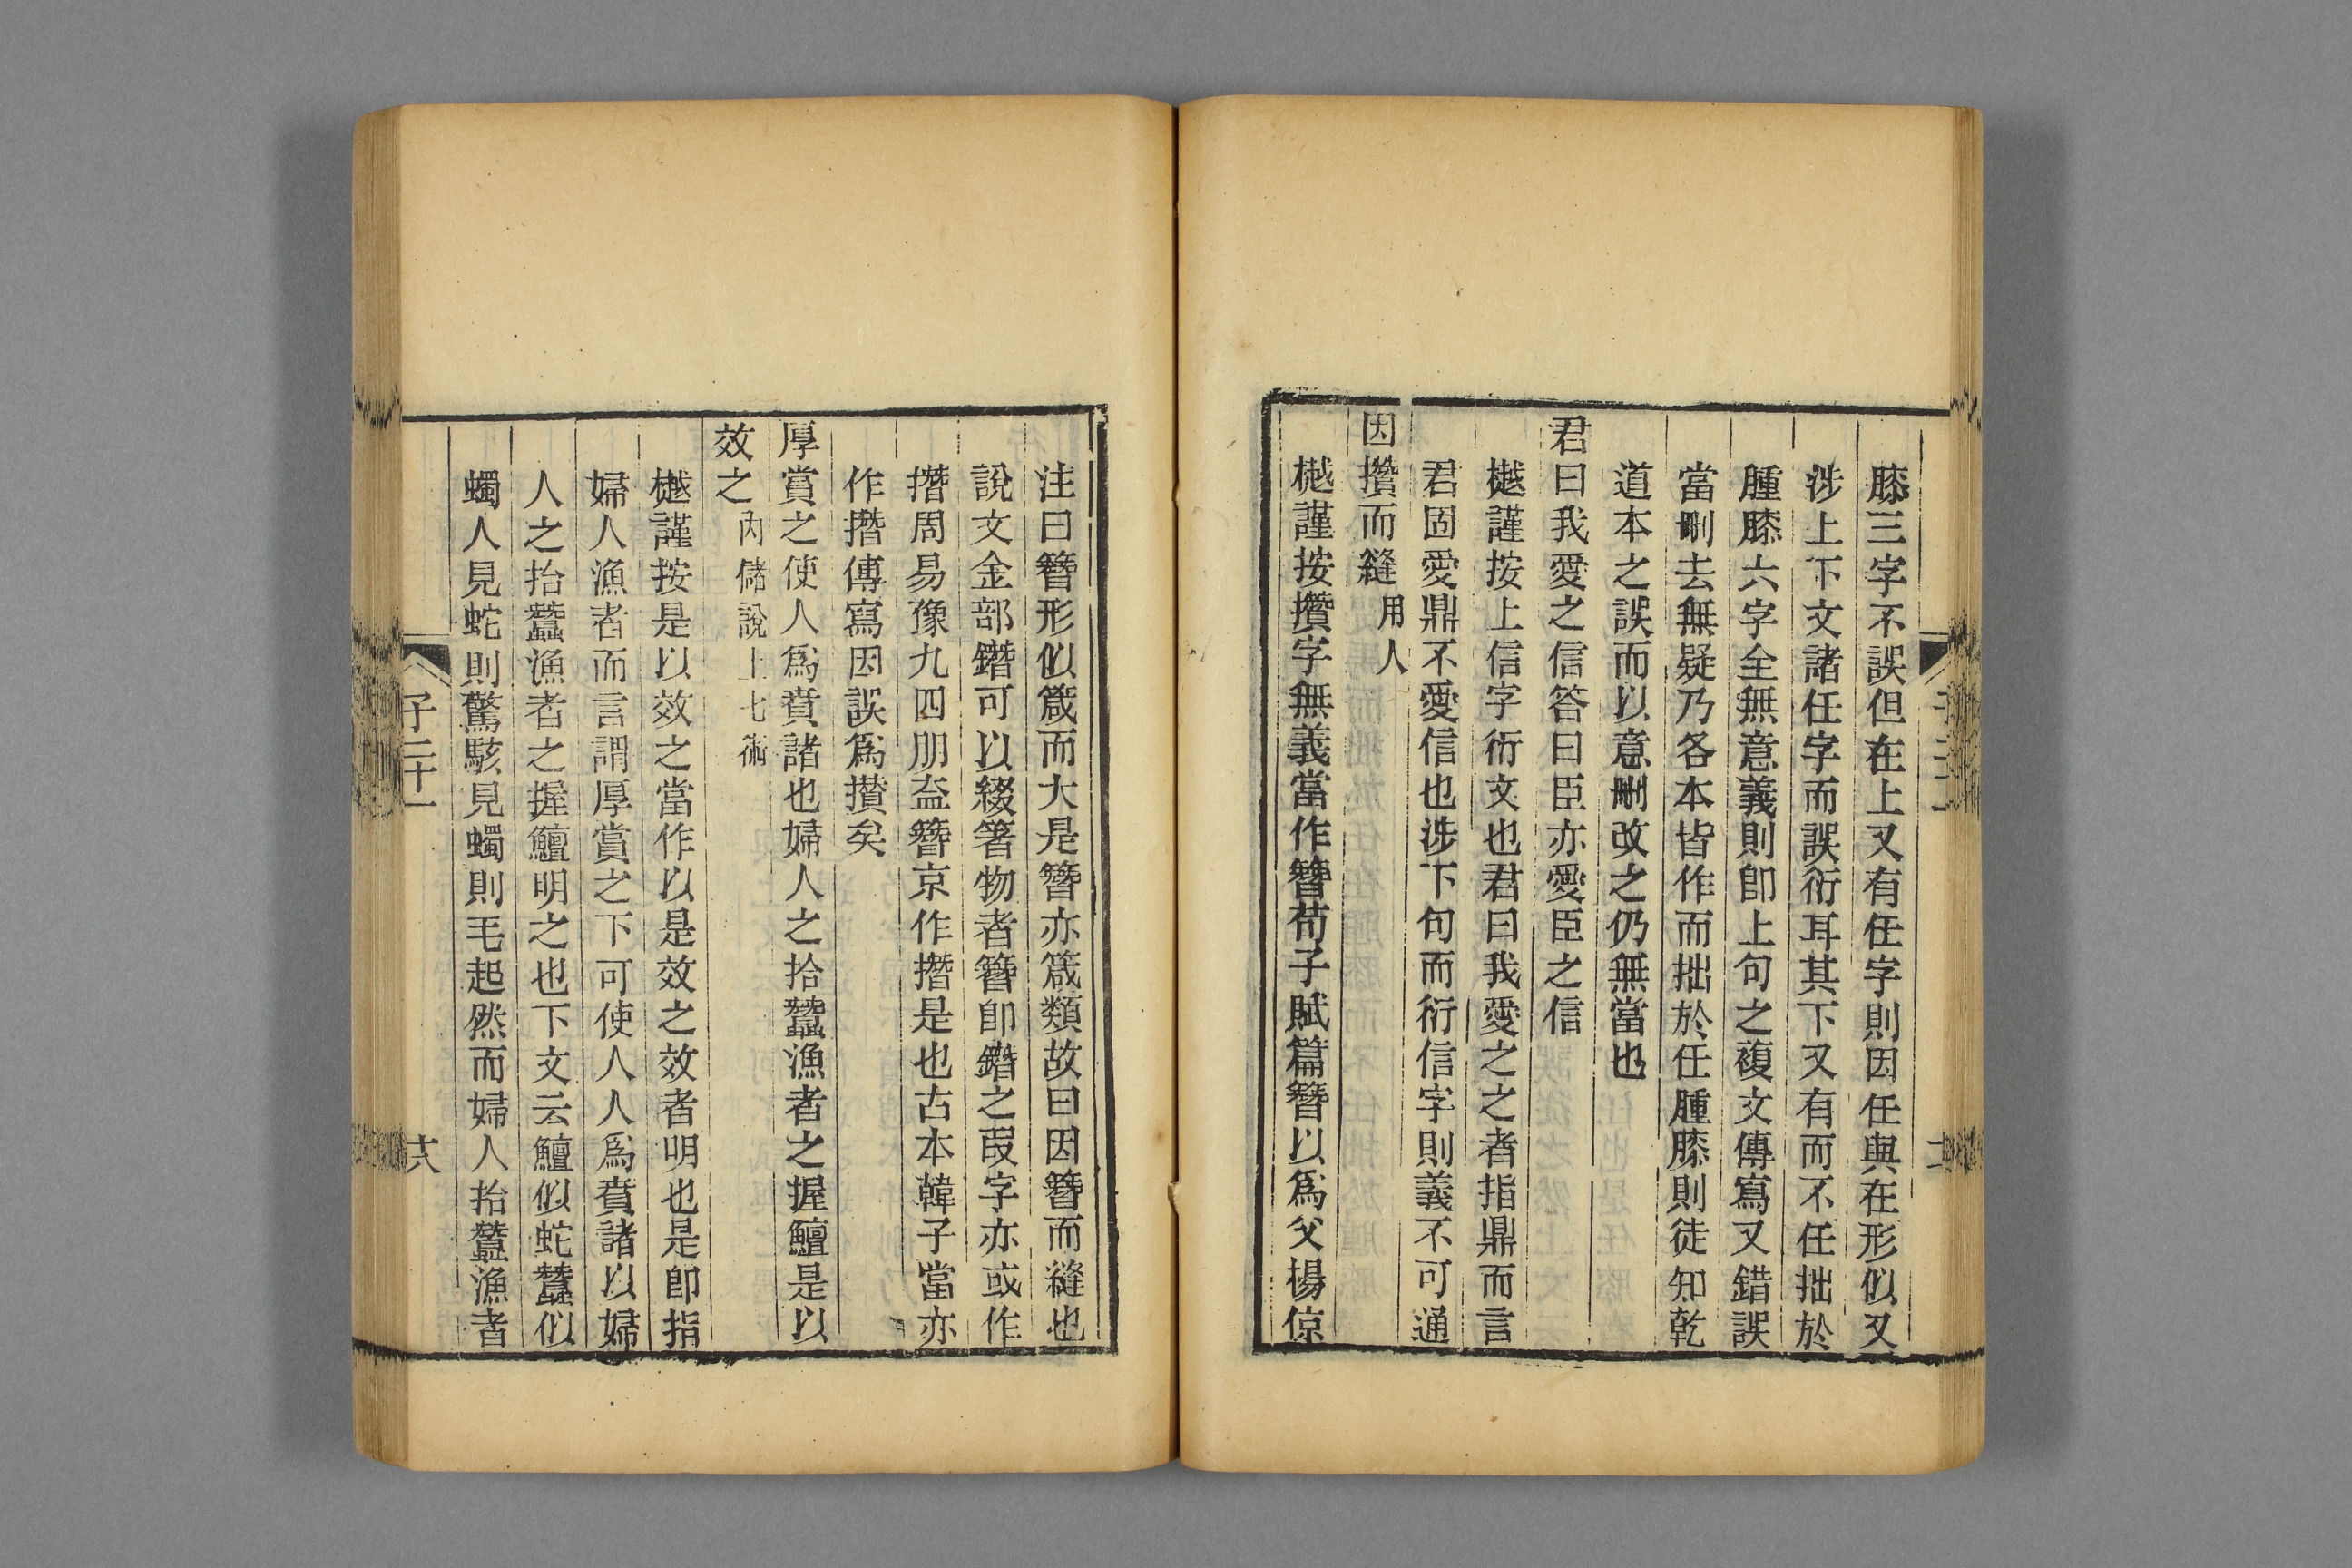 膝三字不誤但在上又有任字則因任與在形似又
涉上下文諸任字而誤衍耳其下又有而不任拙於
腫膝六字全無意義則卽上句之複文傳寫又錯誤
當刪去無疑乃各本皆作而拙於任腫膝則徒知乾
道本之誤而以意刪改之仍無當也
君曰我愛之信答曰臣亦愛臣之信
樾謹按上信字衍文也君曰我愛之之者指鼎而言
君固愛鼎不愛信也涉下句而衍信字則義不可通
因攢而縫用人
樾謹按攢字無義當作簪荀子賦篇簪以爲父楊倞
注曰簪形似箴而大是簪亦箴類故曰因簪而縫也
說文金部鐕可以綴箸物者簪卽鐕之叚字亦或作
撍周易豫九四朋盍簪京作撍是也古本韓子當亦
作撍傳寫因誤爲攢矣
厚賞之使人爲賁諸也婦人之拾蠶漁者之握鱣是以
效之內儲說上七術
樾謹按是以效之當作以是效之效者明也是卽指
婦人漁者而言謂厚賞之下可使人人爲賁諸以婦
人之拾蠶漁者之握鱣明之也下文云鱣似蛇蠶似
蠋人見蛇則驚駭見蠋則毛起然而婦人拾蠶漁者
子二十一
十八